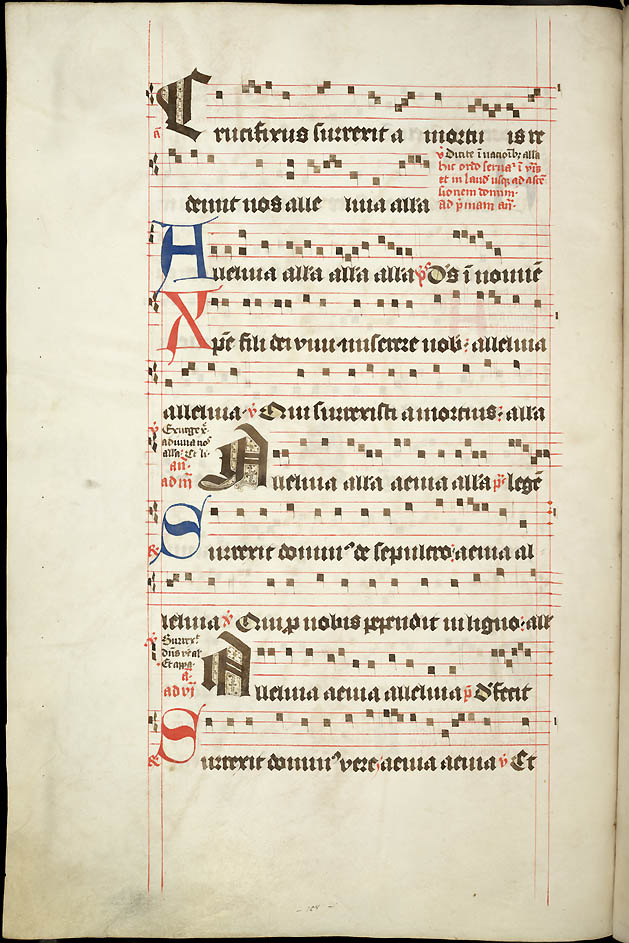 Crucifixus surrexit a mortu is re
demit nos alle luia alľa
℣ Dicite i nacioib; alla
hic ordo servat̉ i
et in laud usq; ad ascē
sionem domini
ad p̉mam añ.
Alleluia alľa alľa alľa p̄s Ds̄ ī nomīe
Xp̄e fili dei vivi miserere nob̉ : alleluia
alleluia ℣ Qui surrexisti a mortuis : alľa
Exurge x̄
adiuva nos
alla : Et li
añ
ad iij
Alleluia alľa aevia alľa p̄s legē
Surrexit domin᷒ de sepulcro : aevia al
leluia ℣ Qui p̱ nobis pependit in ligno : alľ
Surrex̉
dn̄s
Et
a
ad vj
Alleluia aevia alleluia p̄ Defecit
Surrexit domin᷒ vere : aevia aevia ℣ Et